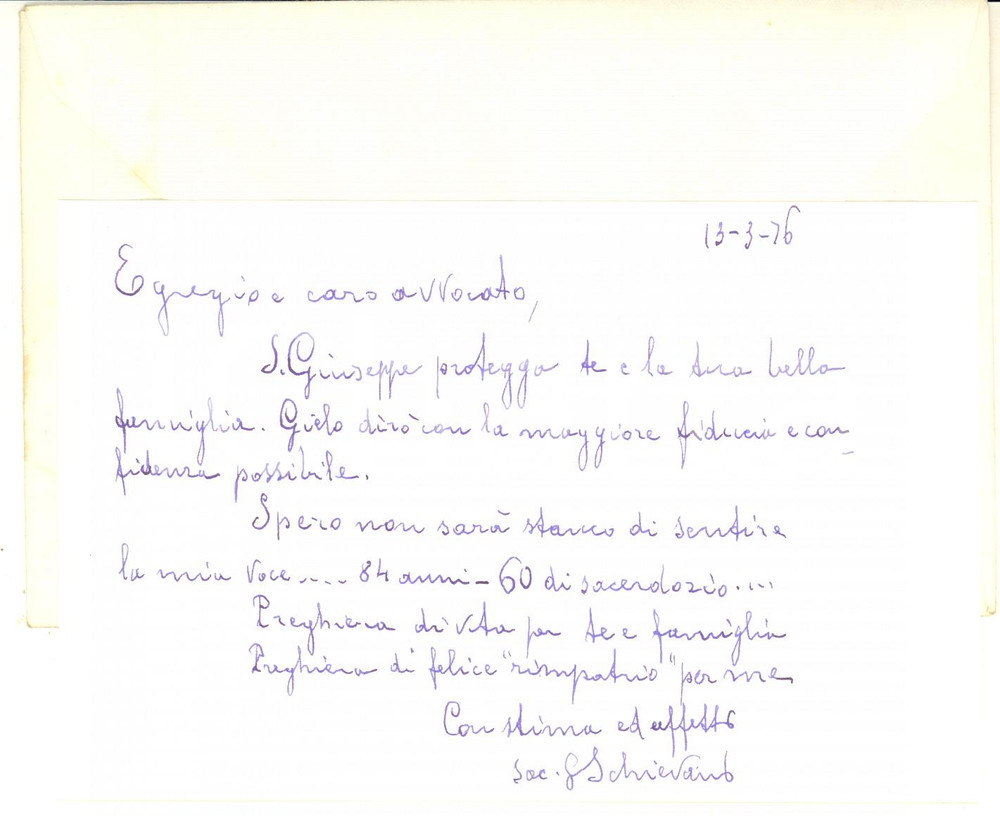 13-3-76
Egregio e caro avvocato,
S. Giuseppe protegga te e la tua bella
famiglia. Glielo dirò con la maggiore fiducia e con
fidenza possibile.
Spero non sarà stanco di sentire
la mia voce.... 84 anni - 60 di sacerdozio....
Preghiera di vita per te e famiglia
Preghiera di felice "rimpatrio" per me
Con stima ed affetto
sac. G Schievano